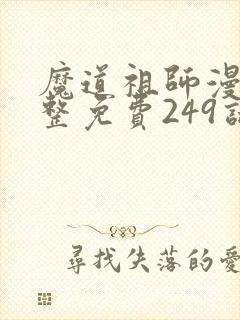 魔道祖師漫
整免費249話
尋找失落的愛